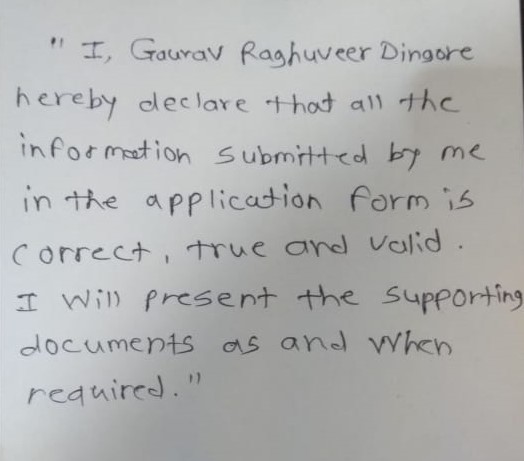 " I, Gaurav Raghuveer Dingore
hereby declare that all the
information submitted by me
in the application form is
correct, true and valid.
I Will present the supporting
documents as and When
required."